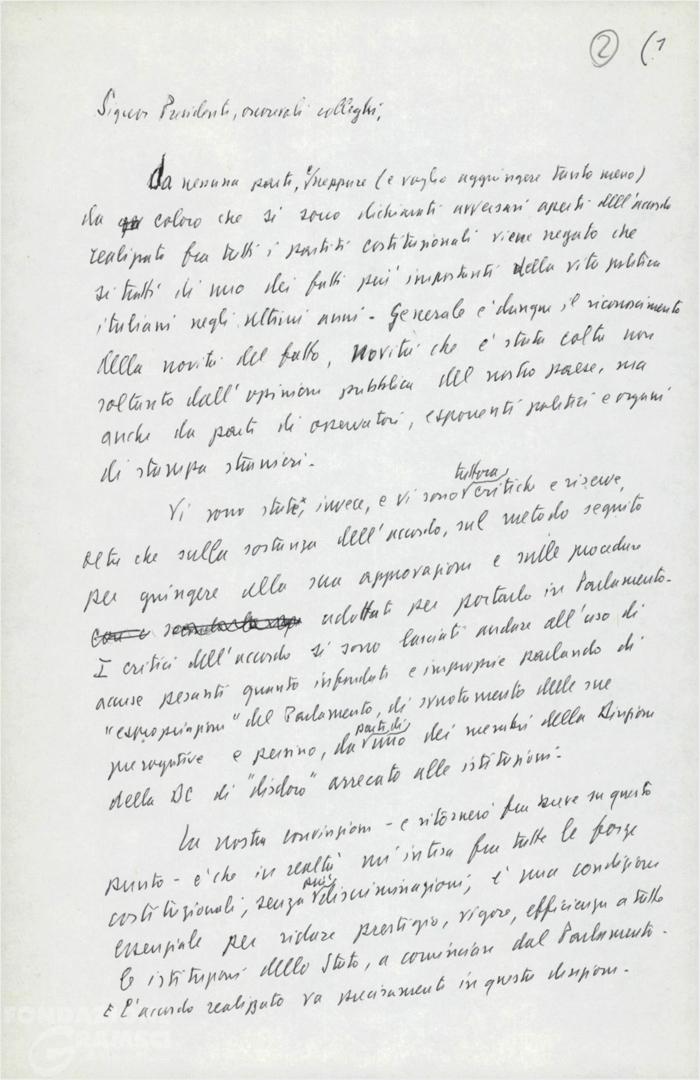 2 (1
Signor Presidente, onorevoli colleghi,
Da nessuna parte, e neppure (e voglio aggiungere tanto meno)
da coloro che si sono dichiarati avversari aperti dell'accordo
realizzato fra tutti i partiti costituzionali viene negato che
si tratti di uno dei fatti più importanti della vita politica
italiana negli ultimi anni - Generale è dunque il riconoscimento
della novità del fatto, novità che è stata colta non
soltanto dall'opinione pubblica del nostro paese, ma
anche da parte di osservatori, esponenti politici e organi
di stampa stranieri.
Vi sono state, invece, e vi sono tuttora critiche e riserve,
oltre che sulla sostanza dell'accordo, sul metodo seguito
per giungere alla sua approvazione e sulle procedure
adottate per portarlo in Parlamento.
I critici dell'accordo si sono lasciati andare all'uso di
accuse pesanti quanto infondate e improprie parlando di
"espropriazione" del Parlamento, di svuotamento delle sue
prerogative e persino, da parte di uno dei membri della Direzione
della DC di "disdoro" arrecato alle istituzioni.
La nostra convinzione - e ritornerò fra breve su questo
punto - è che in realtà un'intesa fra tutte le forze
costituzionali, senza più discriminazioni, è una condizione
essenziale per ridare prestigio, vigore, efficienza a tutte
le istituzioni dello Stato, a cominciare dal Parlamento.
E l'accordo realizzato va precisamente in questa direzione.
FONDAZIONE
GRAMSCI